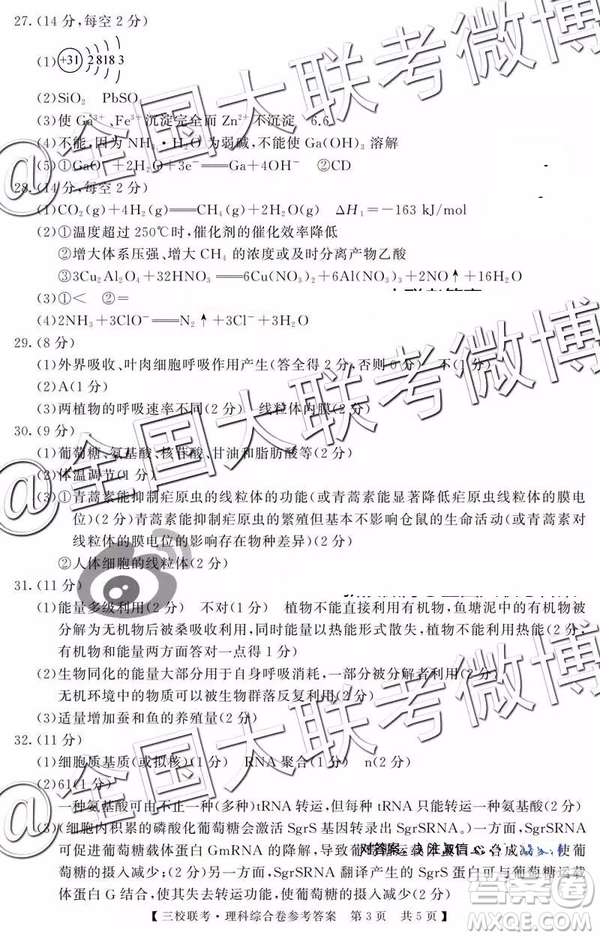 27.(14分,每空2分)
(1) +31 2 8 18 3
(2)SiO₂ PbSO₄
(3)使Ga³⁺、Fe³⁺沉淀完全而Zn²⁺不沉淀 6.6
(4)不能,因为NH₃·H₂O为弱碱,不能使Ga(OH)₃溶解
(5)①GaO₂⁻+2H₂O+3e⁻══Ga+4OH⁻ ②CD
28.(14分,每空2分)
(1)CO₂(g)+4H₂(g)══CH₄(g)+2H₂O(g) ΔH₁=-163 kJ/mol
(2)①温度超过250℃时,催化剂的催化效率降低
②增大体系压强、增大CH₄的浓度或及时分离产物乙酸
③3Cu₂Al₂O₄+32HNO₃══6Cu(NO₃)₂+6Al(NO₃)₃+2NO↑+16H₂O
(3)①< ②=
(4)2NH₃+3ClO⁻══N₂↑+3Cl⁻+3H₂O
29.(8分)
(1)外界吸收、叶肉细胞呼吸作用产生(答全得2分,否则0分) 不(1分)
(2)A(1分)
(3)两植物的呼吸速率不同(2分) 线粒体内膜(2分)
30.(9分)
(1)葡萄糖、氨基酸、核苷酸、甘油和脂肪酸等(2分)
(2)体温调节(1分)
(3)①青蒿素能抑制疟原虫的线粒体的功能(或青蒿素能显著降低疟原虫线粒体的膜电
位)(2分)青蒿素能抑制疟原虫的繁殖但基本不影响仓鼠的生命活动(或青蒿素对
线粒体的膜电位的影响存在物种差异)(2分)
②人体细胞的线粒体(2分)
31.(11分)
(1)能量多级利用(2分) 不对(1分) 植物不能直接利用有机物,鱼塘泥中的有机物被
分解为无机物后可以利用,同时能量以热能形式散失,不能被植物利用(2分,需从
有机物和能量两方面答对一点给1分)
(2)生物同化的能量大部分用于自身呼吸消耗,一部分被分解者利用(2分)
无机环境中的物质可以被生物群落反复利用(2分)
(3)适量增加蚕和鱼的养殖量(2分)
32.(11分)
(1)细胞质基质(或拟核)(1分) RNA聚合(1分) n(2分)
(2)61(1分)
一种氨基酸可由不止一种(多种)tRNA转运,但一种tRNA只能转运一种氨基酸(2分)
(3)(细胞内积累的磷酸化葡萄糖会激活SgrS基因转录出SgrSRNA。)SgrSRNA
可促进葡萄糖载体蛋白GmRNA的降解,导致葡萄糖运载体蛋白G合成减少,使葡
萄糖的摄入减少(2分) SgrSRNA翻译产生的SgrS蛋白可与葡萄糖运载体
蛋白G结合,使葡萄糖的摄入减少(2分)
【三校联考·理科综合卷参考答案 第3页 共5页】
@全国大联考微博
@全国大联考微博
@全国大联考微博
答案圈